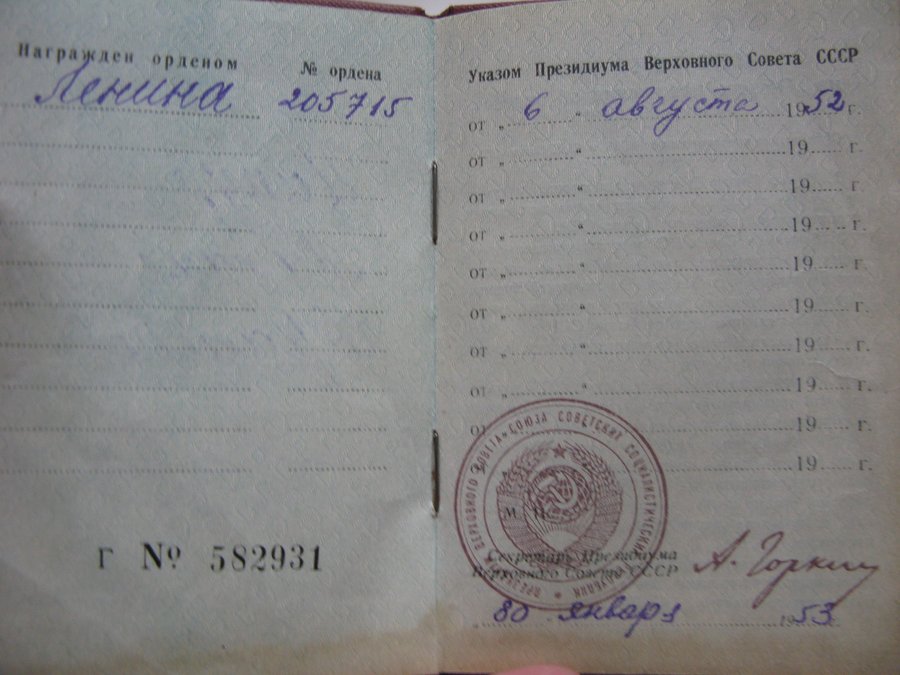 Награжден орденом
№ ордена
Ленина
205715
Г № 582931
Указом Президиума Верховного Совета СССР
от „ 6 “ августа 1952 г.
от „ “ 19 г.
от „ “ 19 г
от „ “ 19 г
от „ “ 19 г.
от „ “ 19 г.
от „ “ 19 г.
от „ “ 19 г.
от „ “ 19 г.
19 г.
М. П.
СОЮЗА СОВЕТСКИХ СОЦИАЛИСТИЧЕСКИХ
ВЕРХОВНОГО СОВЕТА
Секретарь Президиума
Верховного Совета СССР
А. Горкин
„ 30 января 1953 г.